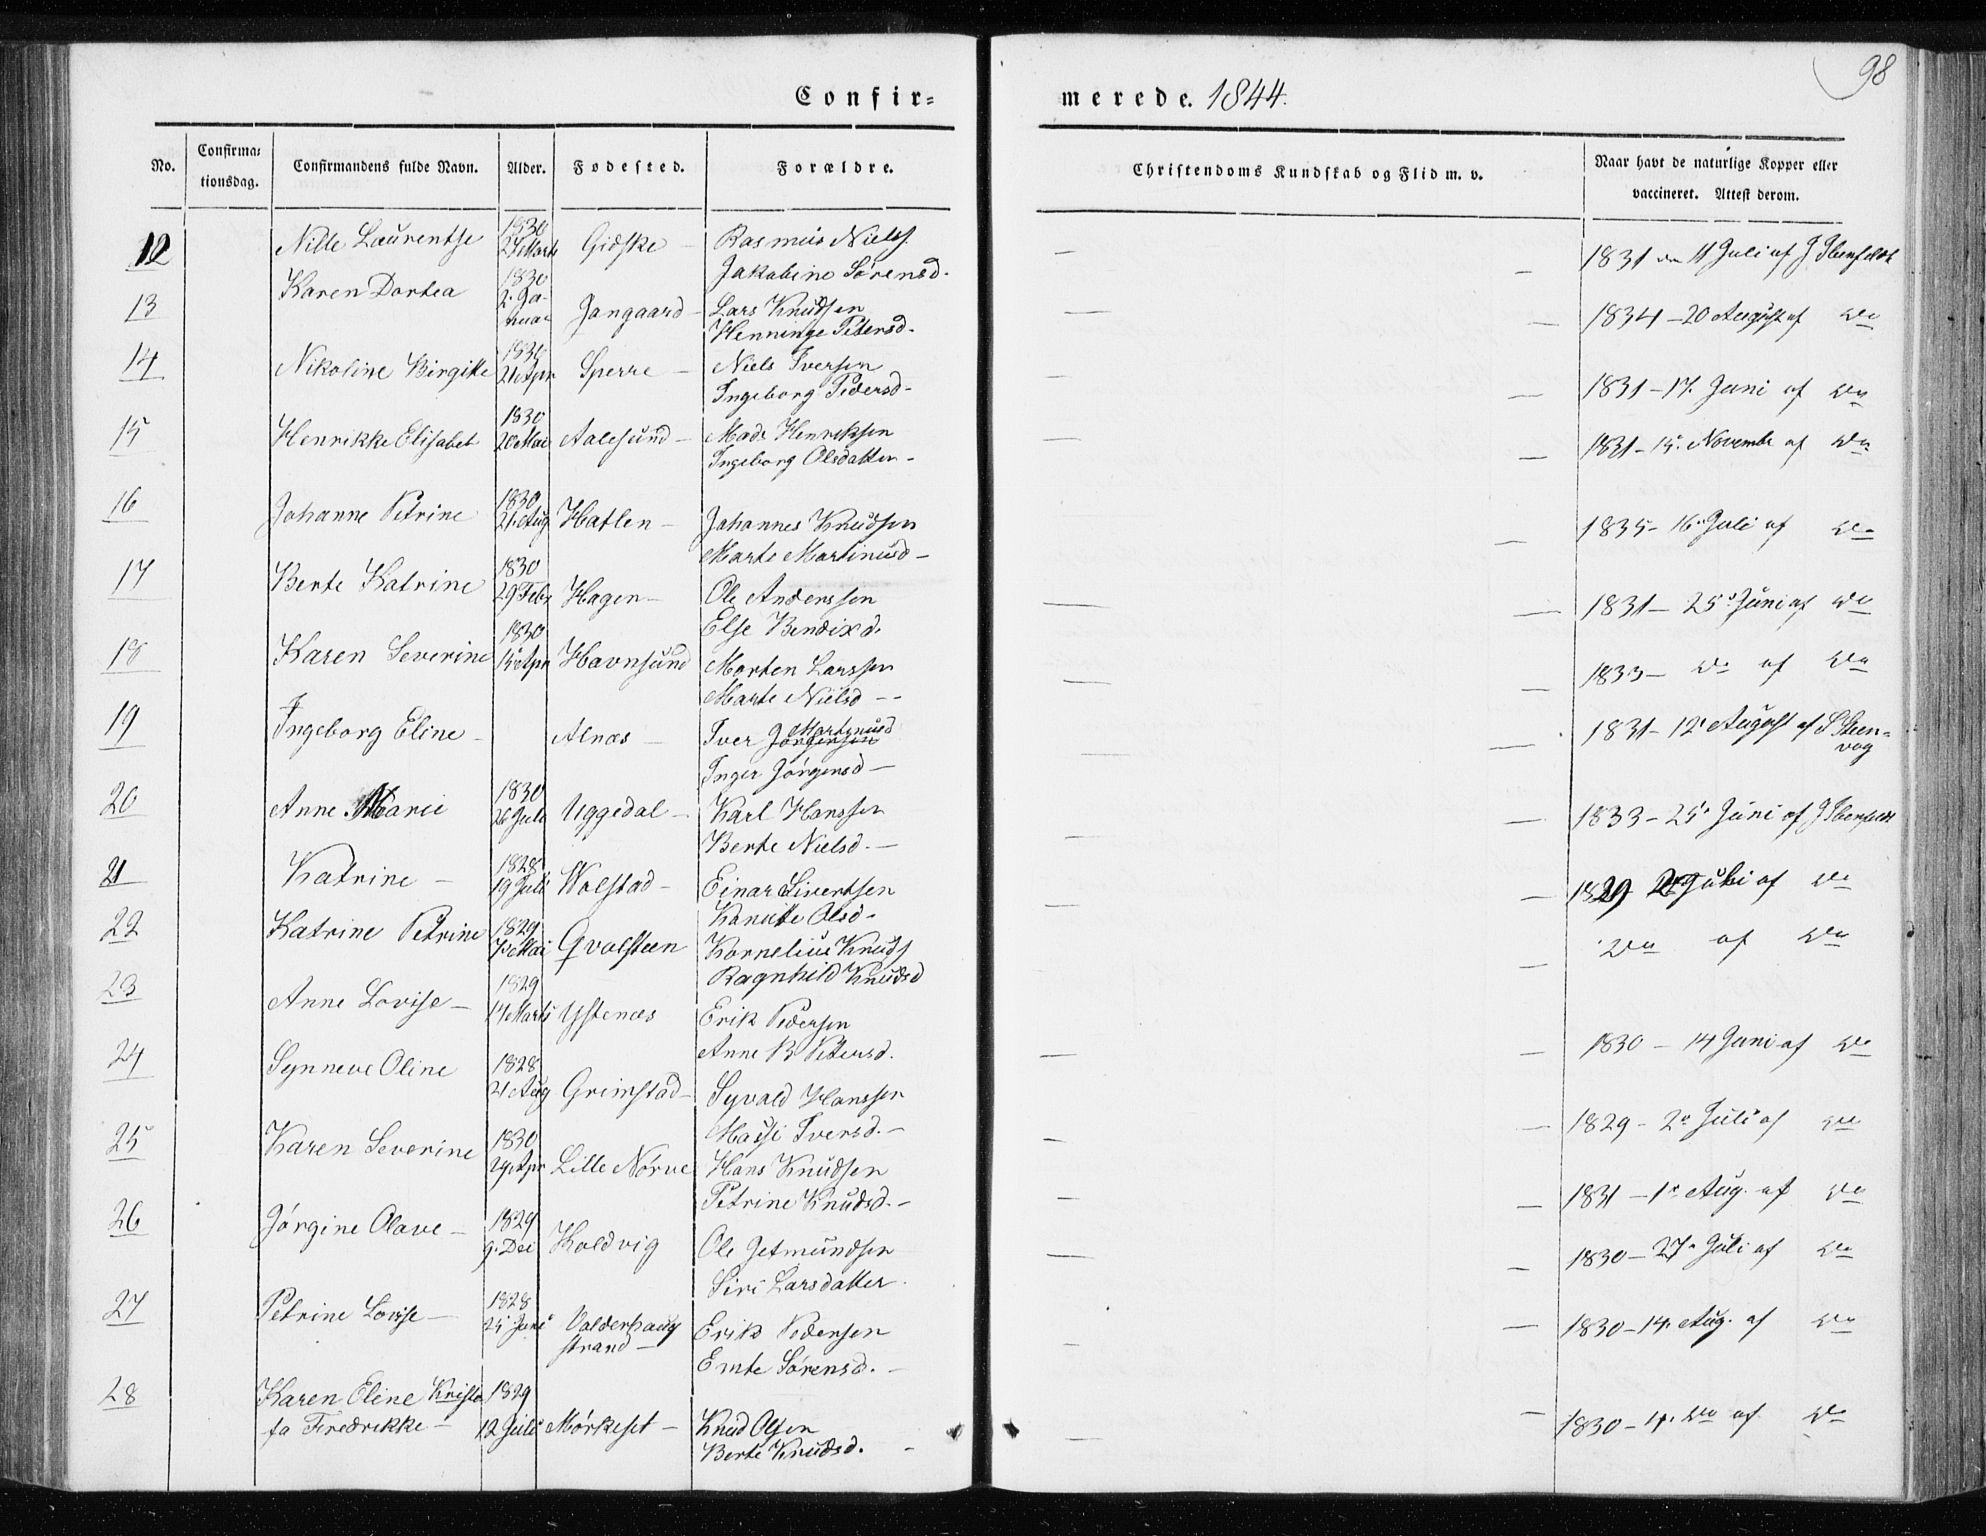 98
Confir= merede. 1844.
No. Confirma= tionsdag. Confirmandens fulde Navn. Alder. Fødested. Forældre. Christendoms Kundskab og Flid m. v. Naar havt de naturlige Kopper eller vaccineret. Attest derom.
12 Nille Laurentse 1830 27 Marts Gidske – Rasmus Niels. Jakobine Sørensd. — 1831 – 11 Juli af J Ibenfeldt
13 Karen Dortea 1830 2. Ja- nuar Gangaard – Lars Knudsen Henninge Petersd. — 1834 – 20 August af Do
14 Nikoline Birgitte 1830 21 Apr Sperre – Niels Iversen Ingeborg Pedersd – 1831 – 17. Juni af Do
15 Henrikke Elisabet 1830 20 Mai Aalesund – Mads Henriksen Ingeborg Olsdatter – 1831 – 15. Novembr af Do
16 Johanne Petrine 1830 21. Aug Hatlen – Johannes Knudsen Marte Martinusd – 1835 – 16. Juli af Do
17 Berte Katrine 1830 29 Febr Hagen – Ole Anderssen Else Bendixd. 1831 – 25. Juni af Do
18 Karen Severine 1830 15 Apr Havnsund Morten Larssen Marte Nielsd – – 1833 – Do af Do
19 Ingeborg Eline – Alnæs – Iver Jørgensen Martinusd Inger Jørgensd – 1831 – 12. August af S Steen= vog
20 Anne Marie 1830 26 Juli Uggedal – Karl Hanssen Berte Nielsd. – 1833 – 25. Juni af J Ibenfeldt
21 Katrine – 1828 19 Juli Wolstad – Einar Sivertsen Kanutte Olsd – 1829 Juli af Do
22 Katrine Petrine 1829 7. Mai Qvalsteen Kornelius Knuds. Ragnhild Knudsd Do af Do
23 Anne Lovise – 1829 14 Marts Ystenæs Erik Pedersen Anne B Petersd. 1830 – 14 Juni af Do
24 Synneve Oline 1828 21 Aug Grimstad – Syvald Hanssen Massi Iversd. – 1829 – 2. Juli af Do
25 Karen Severine 1830 29. Apr Lille Nørve Hans Knudsen Petrine Knudsd. – 1831 – 1. Aug. af Do
26 Jørgine Olave – 1829 9. Dec Koldvig Ole Getmundsen Siri Larsdatter. 1830 – 27. Juli af Do
27 Petrine Lovise – 1828 25 Juni Valderhaug strand – Erik Pedersen Emte Sørensd. – 1830 – 14. Aug. af Do
28 Karen Eline Kristo fa Fredrikke – 1829 12 Juli Mørkeset – Knud Olsen Berte Knudsd. – 1830 – 4. Do af Do